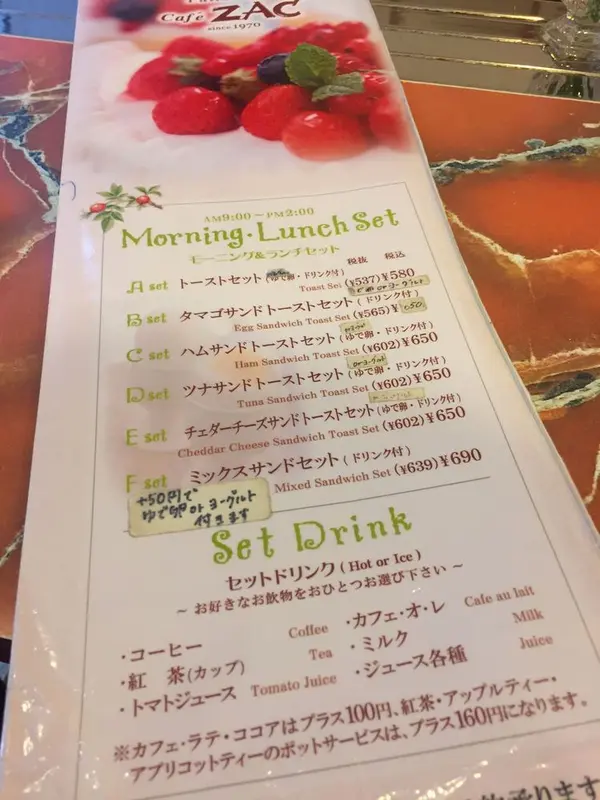 Café ZAC
since1970
AM9:00～PM2:00
Morning・Lunch Set
モーニング&ランチセット
税抜 税込
A set トーストセット(ゆで卵・ドリンク付)
Toast Set (¥537)¥580
B set タマゴサンドトーストセット(ドリンク付)
Egg Sandwich Toast Set (¥565)¥650
C set ハムサンドトーストセット(ゆで卵・ドリンク付)
Ham Sandwich Toast Set (¥602)¥650
orヨーグルト
D set ツナサンドトーストセット(ゆで卵・ドリンク付)
Tuna Sandwich Toast Set (¥602)¥650
E set チェダーチーズサンドトーストセット(ゆで卵・ドリンク付)
Cheddar Cheese Sandwich Toast Set (¥602)¥650
F set ミックスサンドセット(ドリンク付)
Mixed Sandwich Set (¥639)¥690
+50円で
ゆで卵orヨーグルト
付きます
Set Drink
セットドリンク(Hot or Ice)
～お好きなお飲物をおひとつお選び下さい～
・コーヒー Coffee
・紅 茶(カップ) Tea
・トマトジュース Tomato Juice
・カフェ・オ・レ Cafe au lait
・ミルク Milk
・ジュース各種 Juice
※カフェ・ラテ・ココアはプラス100円、紅茶・アップルティー・
アプリコットティーのポットサービスは、プラス160円になります。